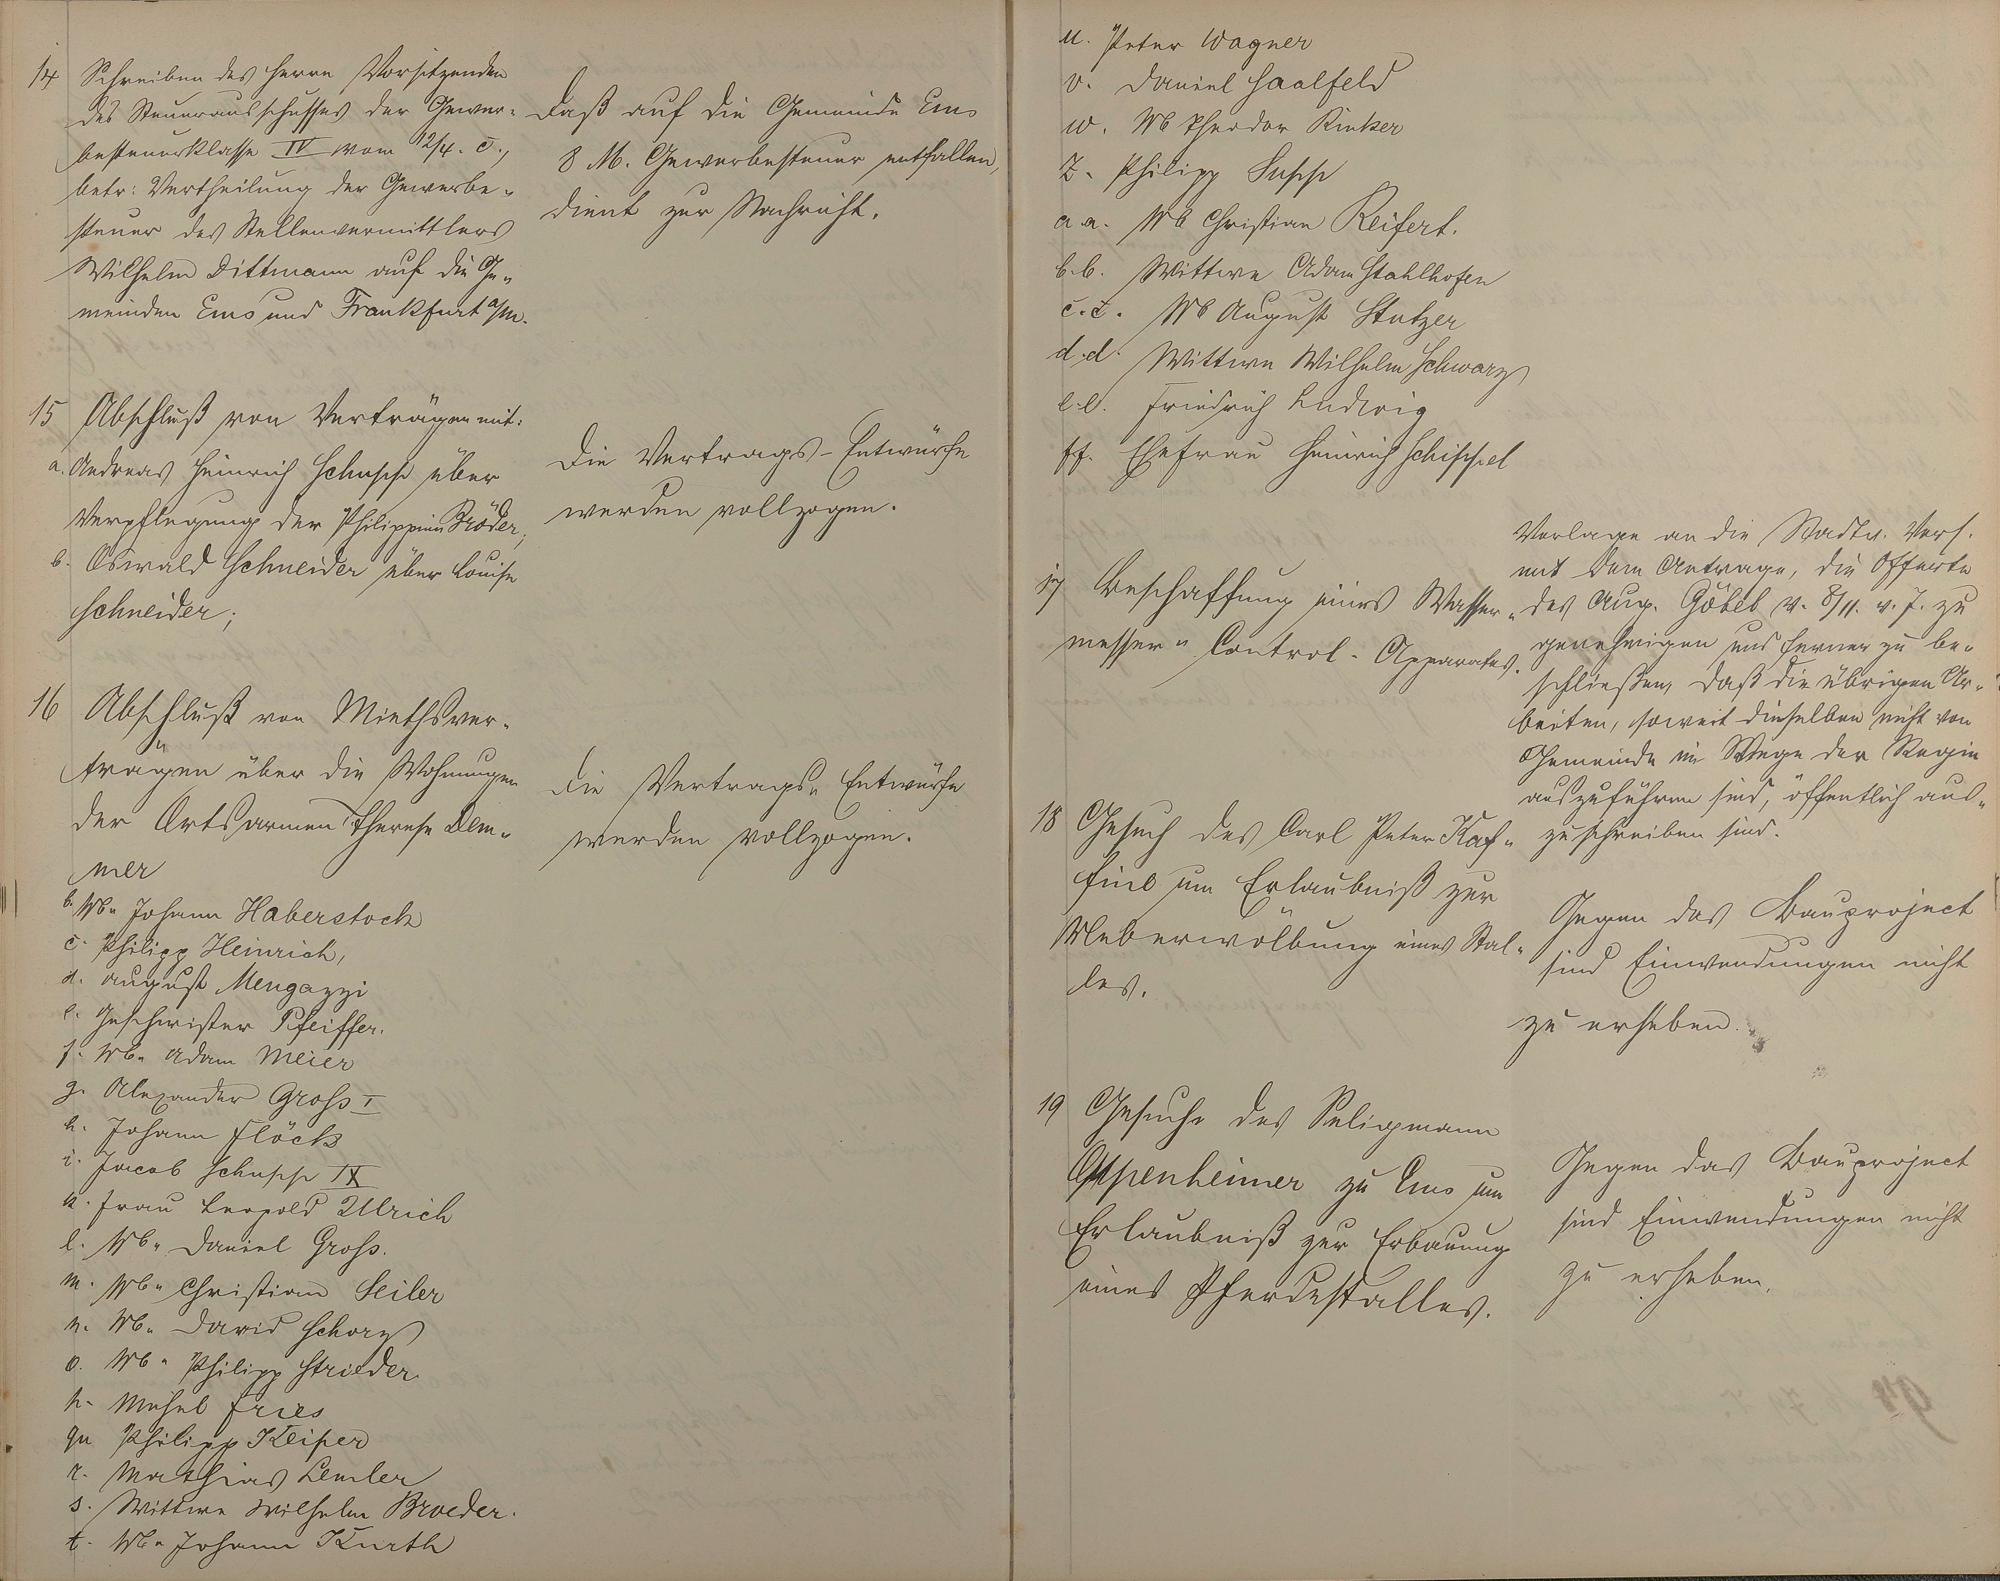 14 Schreiben des Herrn Vorsitzenden
des Steuerausschusses der Gewer-
besteuerklasse IV vom 12/4. c.,
betr: Vertheilung der Gewerbe-
steuer des Stellenvermittlers
Wilhelm Dittmann auf die Ge-
meinden Ems und Frankfurt a/M.
Daß auf die Gemeinde Ems
8 M. Gewerbesteuer entfallen,
dient zur Nachricht.
15 Abschluß von Verträgen mit:
a. Andreas Heinrich Schupp über
Verpflegung der Philippine Bröder;
b. Oswald Schneider über Louise
Schneider;
Die Vertrags-Entwürfe
werden vollzogen.
16 Abschluß von Miethsver-
trägen über die Wohnungen
der Ortsarmen Therese Dem-
mer
Die Vertrags-Entwürfe
werden vollzogen.
b. Wb. Johann Haberstock
c. Philipp Heinrich,
d. August Mengazzi
e. Geschwister Pfeiffer.
f. Wb. Adam Meier
g. Alexander Gross I
h. Johann Flöck
i. Jacob Schupp IX
k. Frau Leopold Ullrich
l. Wb. Daniel Gross.
m. Wb. Christian Seiler
n. Wb. David Schorz
o. Wb. Philipp Strieder
p. Michel Fries
q. Philipp Keiper
r. Mathias Lemler
s. Wittwe Wilhelm Broeder.
t. Wb. Johann Kurth
u. Peter Wagner
v. Daniel Saalfeld
w. Wb Theodor Rinker
z. Philipp Supp
a.a. Wb Christian Reifert.
b.b. Wittwe Adam Stahlhofen
c.c. Wb August Stutzer
d.d. Wittwe Wilhelm Schwarz
e.e. Friedrich Ludwig
f.f. Ehefrau Heinrich Schippel
17 Beschaffung eines Wasser-
messer-Control-Apparates.
Vorlage an die Stadtv. Vers.
mit dem Antrage, die Offerte
des Aug. Göbel v. 8/11. v. J. zu
genehmigen und ferner zu be-
schließen, daß die übrigen Ar-
beiten, soweit dieselben nicht von
Gemeinde im Wege der Regie
auszuführen sind, öffentlich aus-
zuschreiben sind.
18 Gesuch des Carl Peter Kaf-
fine um Erlaubniß zur
Ueberwölbung eines Stal-
les.
Gegen das Bauproject
sind Einwendungen nicht
zu erheben.
19 Gesuche des Seligmann
Oppenheimer zu Ems um
Erlaubniß zur Erbauung
eines Pferdestalles.
Gegen das Bauproject
sind Einwendungen nicht
zu erheben.